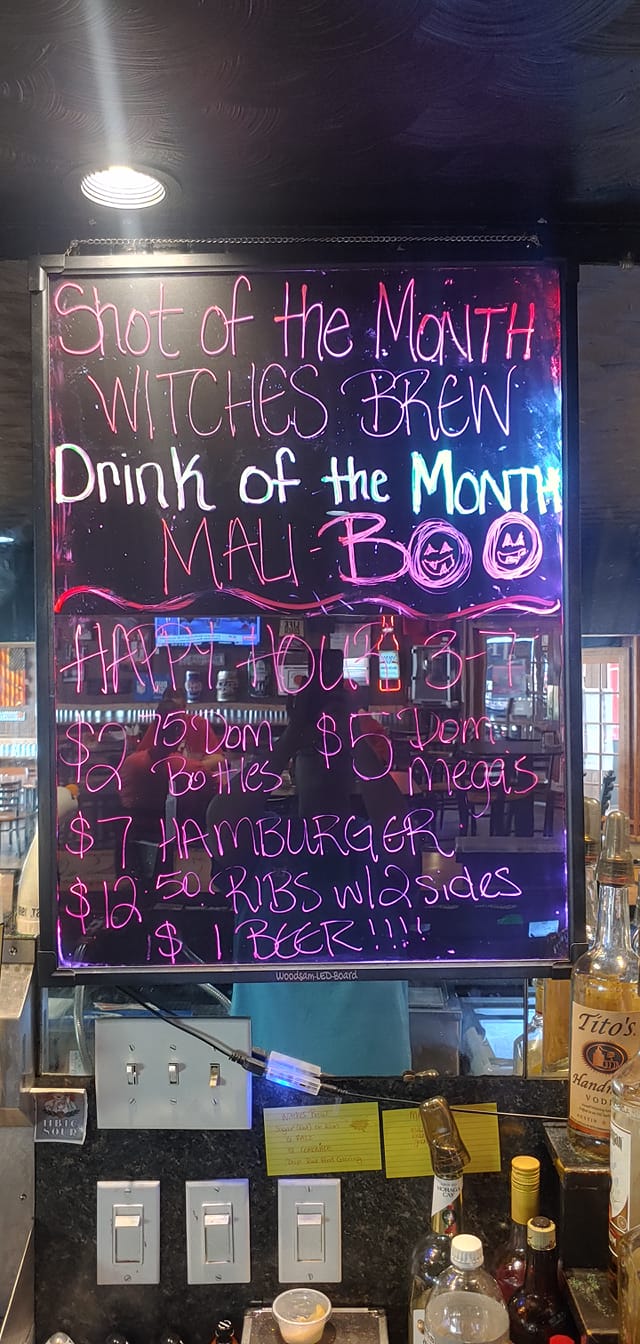 Shot of the MONTH
WITCHES BREW
Drink of the MONTH
MALI-BOO
HAPPY HOUR 3-7
$2.75 Dom Bottles $5 Dom Megas
$7 HAMBURGER
$12.50 RIBS w/2 sides
$1 BEER!!!!
Woodsam-LED-Board
Tito's
Handm
VOD